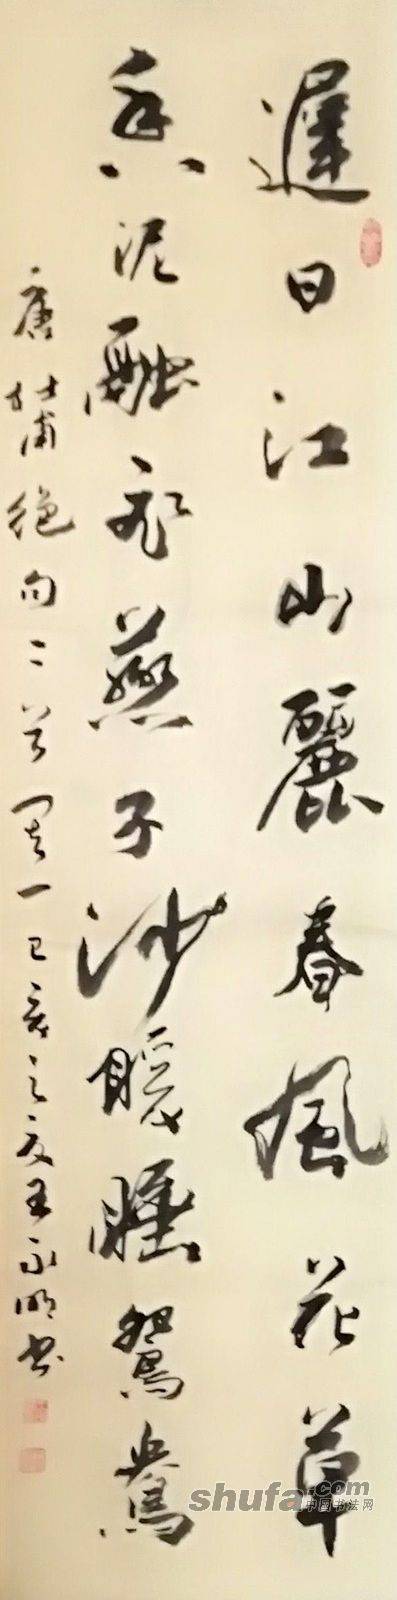 遲日江山麗春風花草
香泥融飛燕子沙暖睡鴛鴦
唐杜甫絕句二首其一己亥之夏王永明書
shufa.com
中国书法网